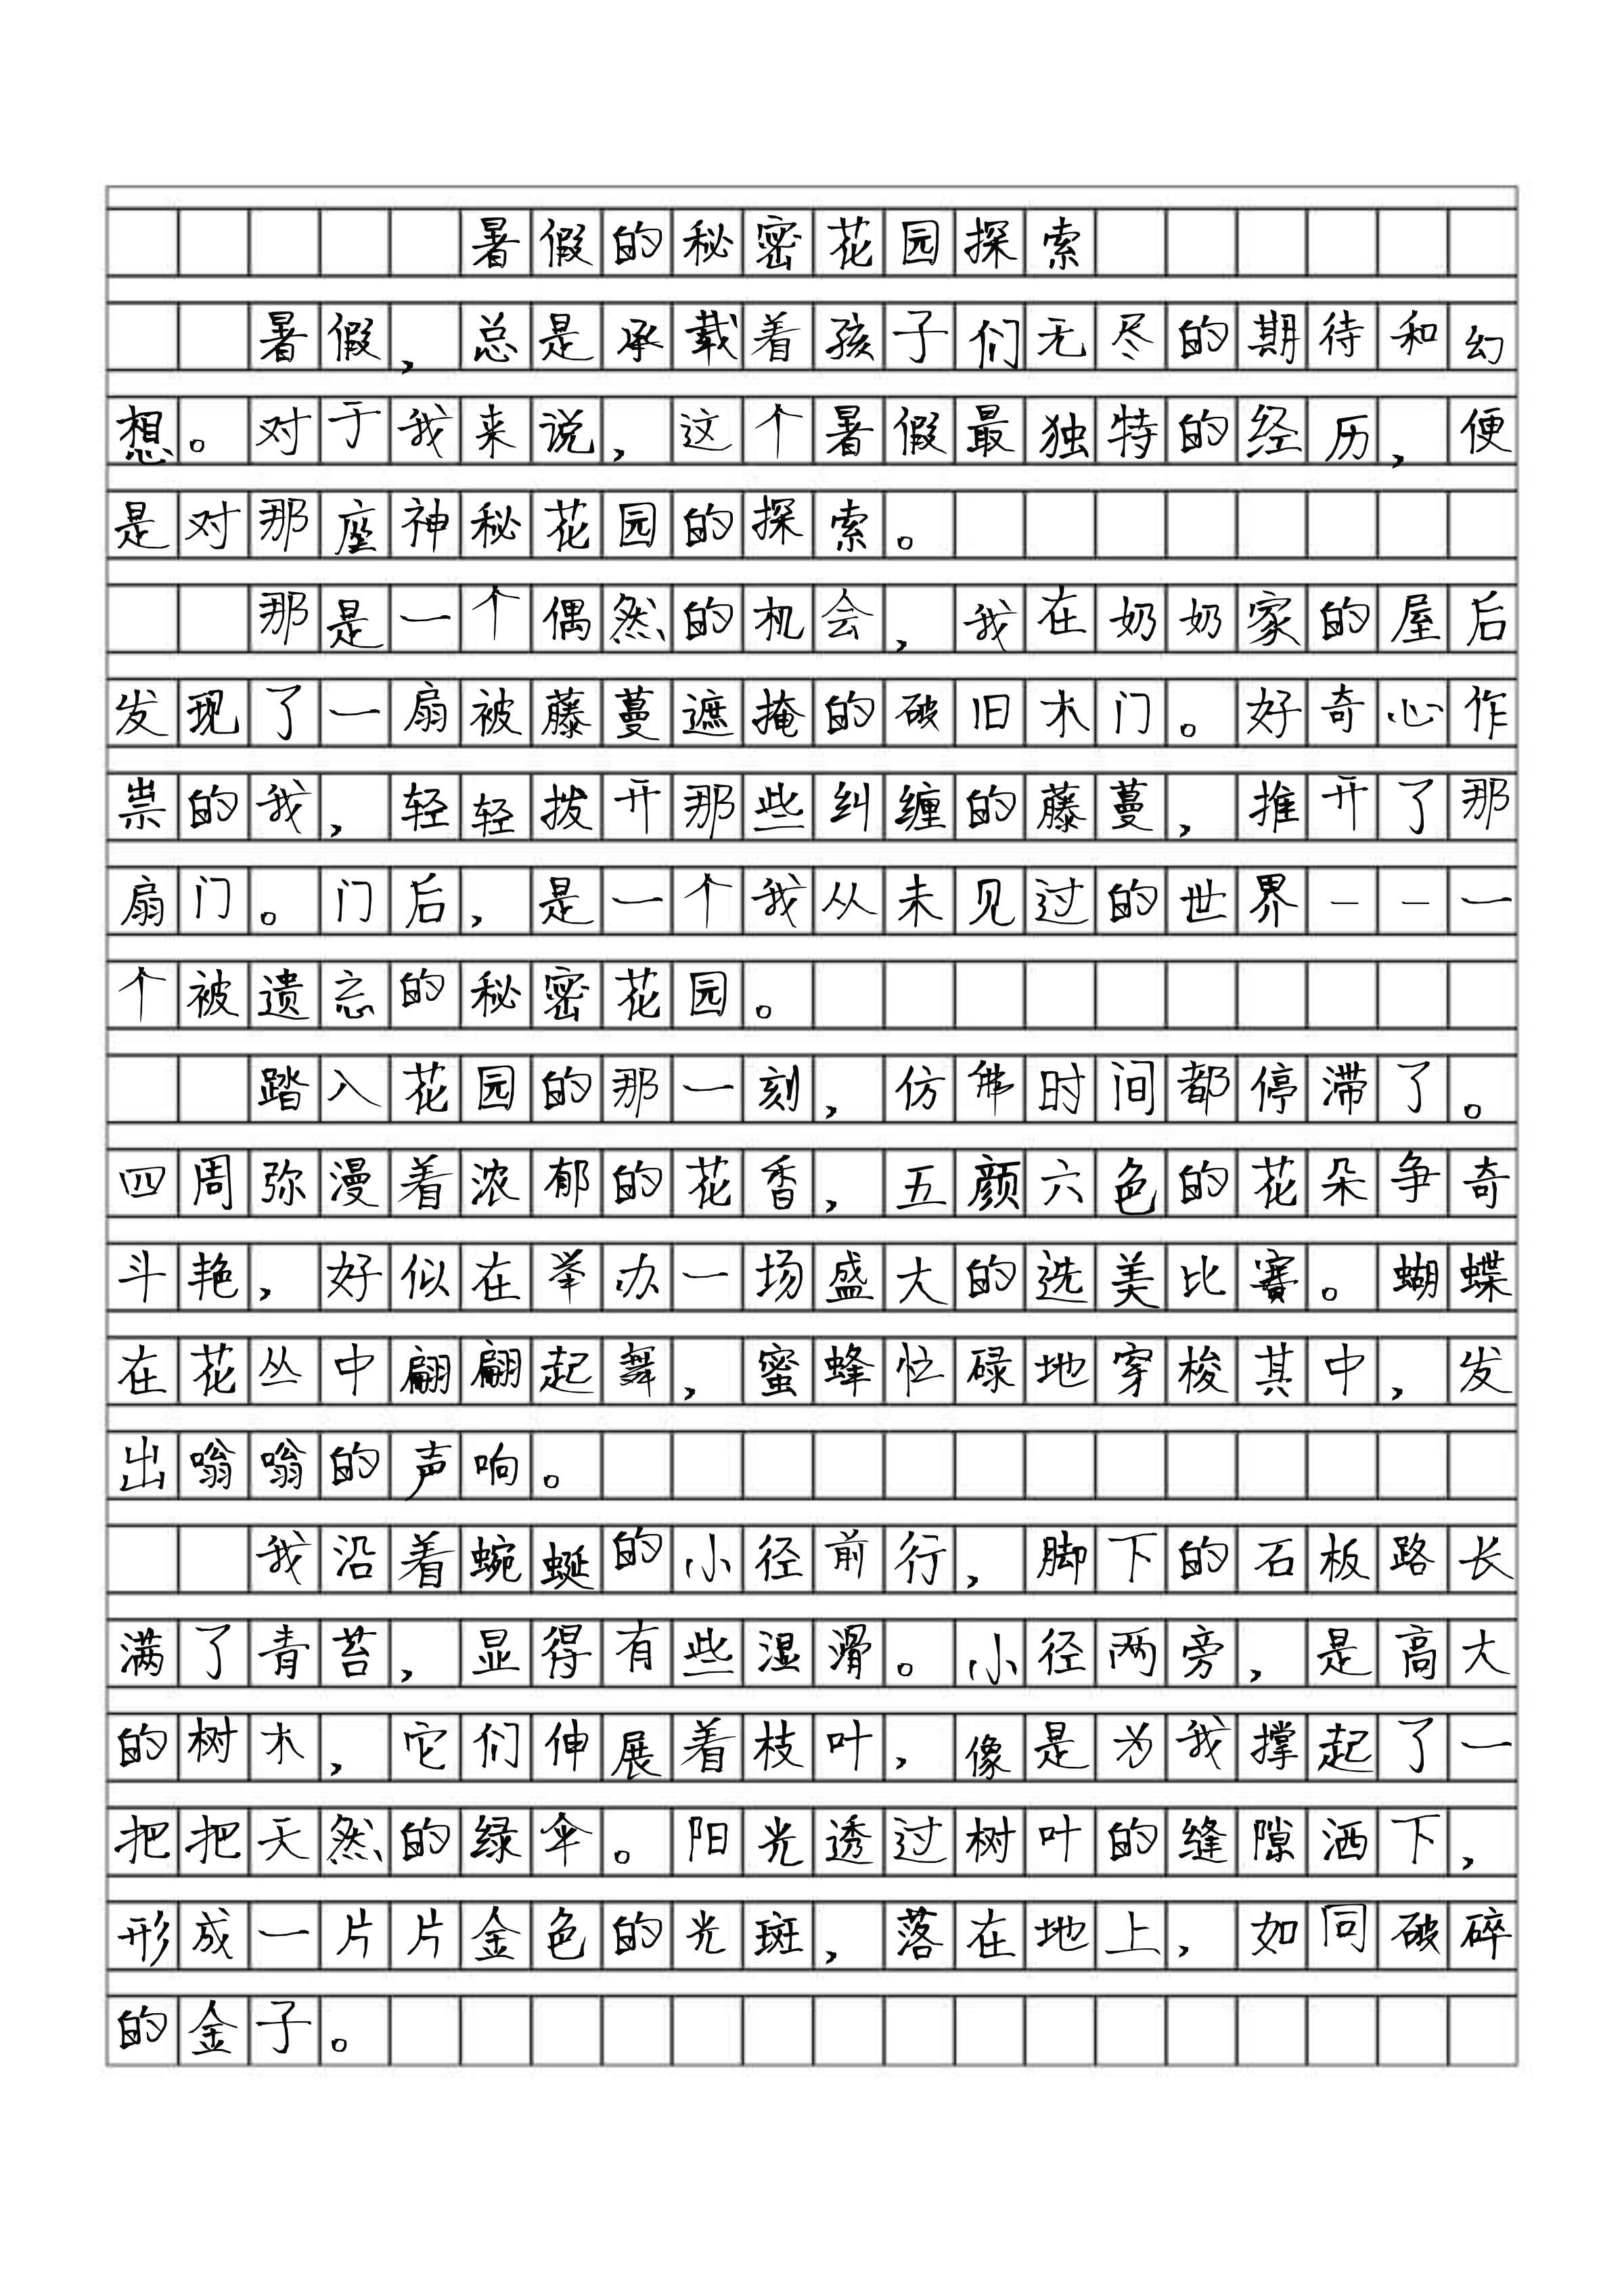 暑假的秘密花园探索
暑假，总是承载着孩子们无尽的期待和幻
想。对于我来说，这个暑假最独特的经历，便
是对那座神秘花园的探索。
那是一个偶然的机会，我在奶奶家的屋后
发现了一扇被藤蔓遮掩的破旧木门。好奇心作
祟的我，轻轻拨开那些纠缠的藤蔓，推开了那
扇门。门后，是一个我从未见过的世界——一
个被遗忘的秘密花园。
踏入花园的那一刻，仿佛时间都停滞了。
四周弥漫着浓郁的花香，五颜六色的花朵争奇
斗艳，好似在举办一场盛大的选美比赛。蝴蝶
在花丛中翩翩起舞，蜜蜂忙碌地穿梭其中，发
出嗡嗡的声响。
我沿着蜿蜒的小径前行，脚下的石板路长
满了青苔，显得有些湿滑。小径两旁，是高大
的树木，它们伸展着枝叶，像是为我撑起了一
把把天然的绿伞。阳光透过树叶的缝隙洒下，
形成一片片金色的光斑，落在地上，如同破碎
的金子。